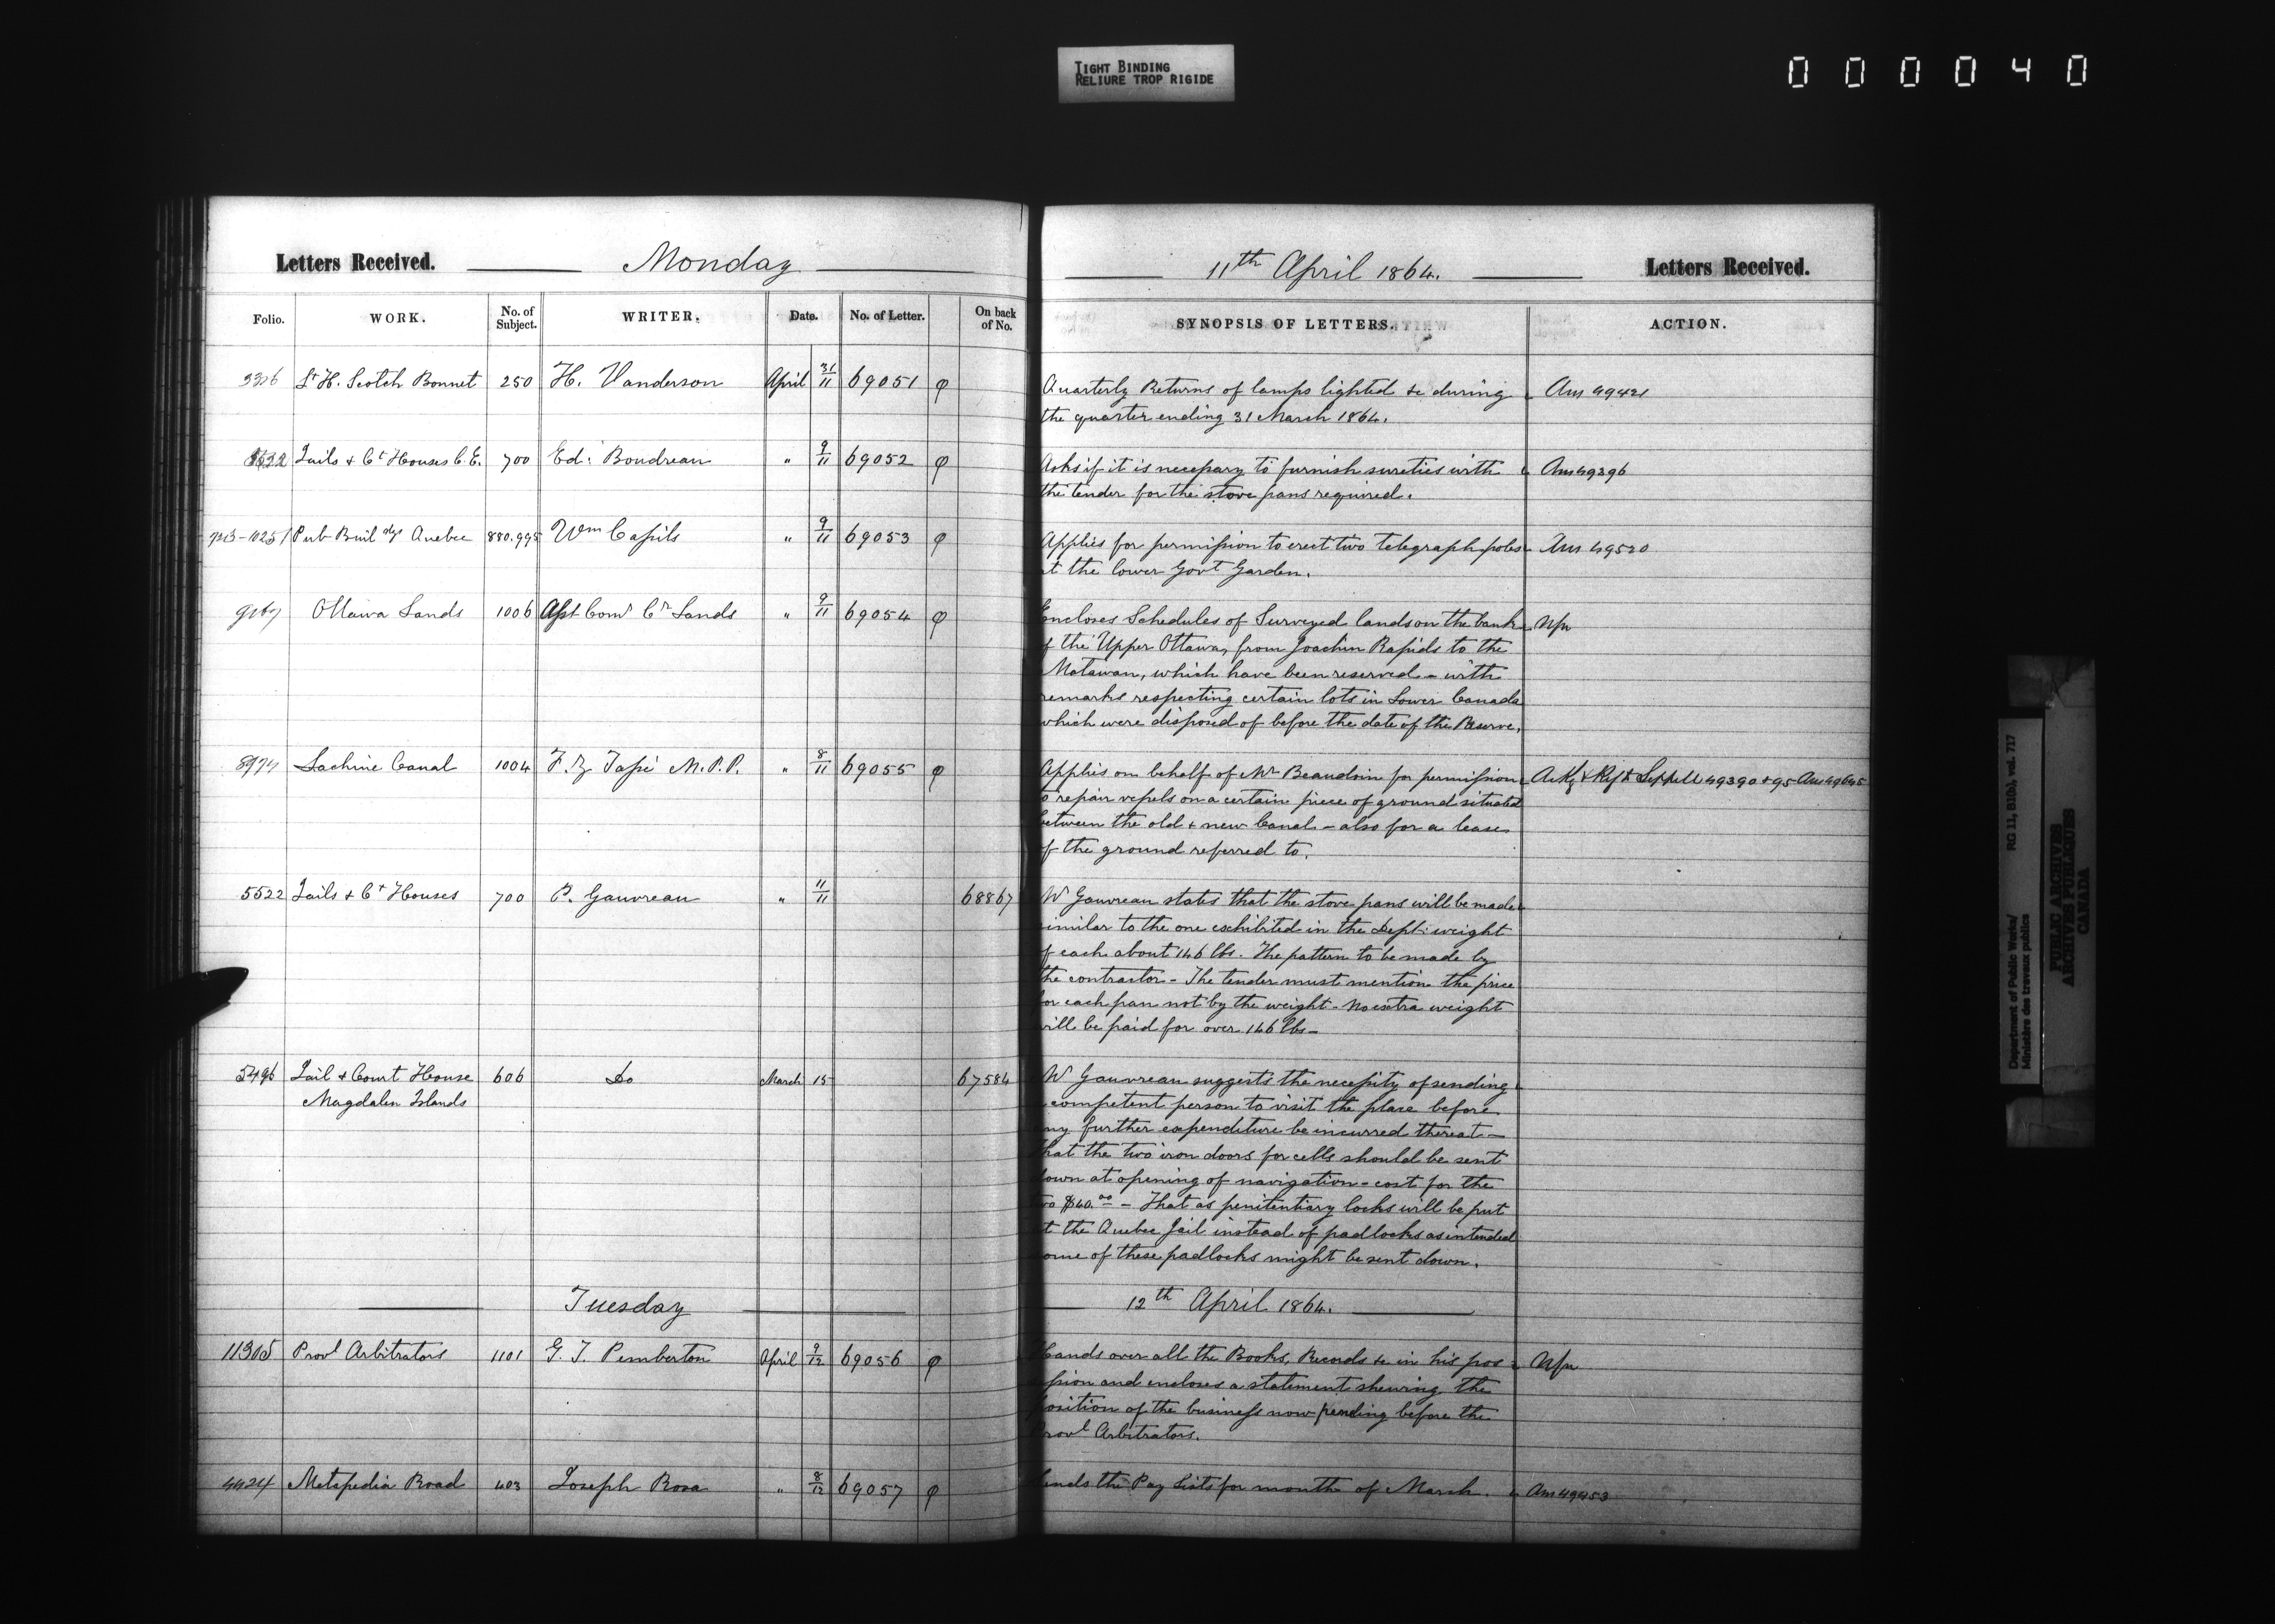 TIGHT BINDING
RELIURE TROP RIGIDE
000040
Letters Received. Monday
Folio. WORK. No. of Subject. WRITER. Date. No. of Letter. On back of No.
Lt H. Scotch Bonnet 250 H. Vanderson April 31/11 69051 φ
5522 Jails & Ct Houses C.E. 700 Ed: Boudreau " 9/11 69052 φ
Pub Buildgs Quebec 880.995 Wm Cassils " 9/11 69053 φ
Ottawa Lands 1006 Asst Comr Cn Lands " 9/11 69054 φ
Lachine Canal 1004 F. Z. Tassé M.P.P. " 8/11 69055 φ
5522 Jails & Ct Houses 700 P. Gauvreau " 11/11 68867
5496 Jail & Court House 606 Do March 15 67584
Magdalen Islands
Tuesday
11305 Provl Arbitrators 1101 G. T. Pemberton April 9/12 69056 φ
4424 Metapedia Road 403 Joseph Rosa " 8/12 69057 φ
11th April 1864. Letters Received.
SYNOPSIS OF LETTERS. ACTION.
Quarterly Returns of lamps lighted &c during Ans 49421
the quarter ending 31 March 1864.
Asks if it is necessary to furnish sureties with Ans 49396
the tender for the stove pans required.
Applies for permission to erect two telegraph poles Ans 49520
at the lower Govt Garden.
Encloses Schedules of Surveyed lands on the bank N/n
of the Upper Ottawa, from Joachin Rapids to the
Matawan, which have been reserved - with
remarks respecting certain lots in Lower Canada
which were disposed of before the date of the Reserve.
Applies on behalf of Mr Beaudoin for permission Ack & Ref to Sippell 49390 & 95 Ans 49645
to repair vessels on a certain piece of ground situated
between the old & new Canal - also for a lease
of the ground referred to.
Mr Gauvreau states that the stove pans will be made
similar to the one exhibited in the Dept: weight
of each about 146 lbs. The pattern to be made by
the contractor - The tender must mention the price
for each pan not by the weight - no extra weight
will be paid for over 146 lbs -
Mr Gauvreau suggests the necessity of sending
competent person to visit the place before
any further expenditure be incurred thereat -
that the two iron doors for cells should be sent
down at opening of navigation - cost for the
two $40.00 - That as penitentiary locks will be put
at the Quebec Jail instead of padlocks as intended
some of these padlocks might be sent down.
12th April 1864.
Hands over all the Books, Records &c in his pos- N/n
ssion and encloses a statement shewing the
position of the business now pending before the
Provl Arbitrators.
Sends the Pay Lists for month of March. Ans 49453
Department of Public Works/ RG 11, B1(b), vol. 717
Ministère des travaux publics
PUBLIC ARCHIVES
ARCHIVES PUBLIQUES
CANADA